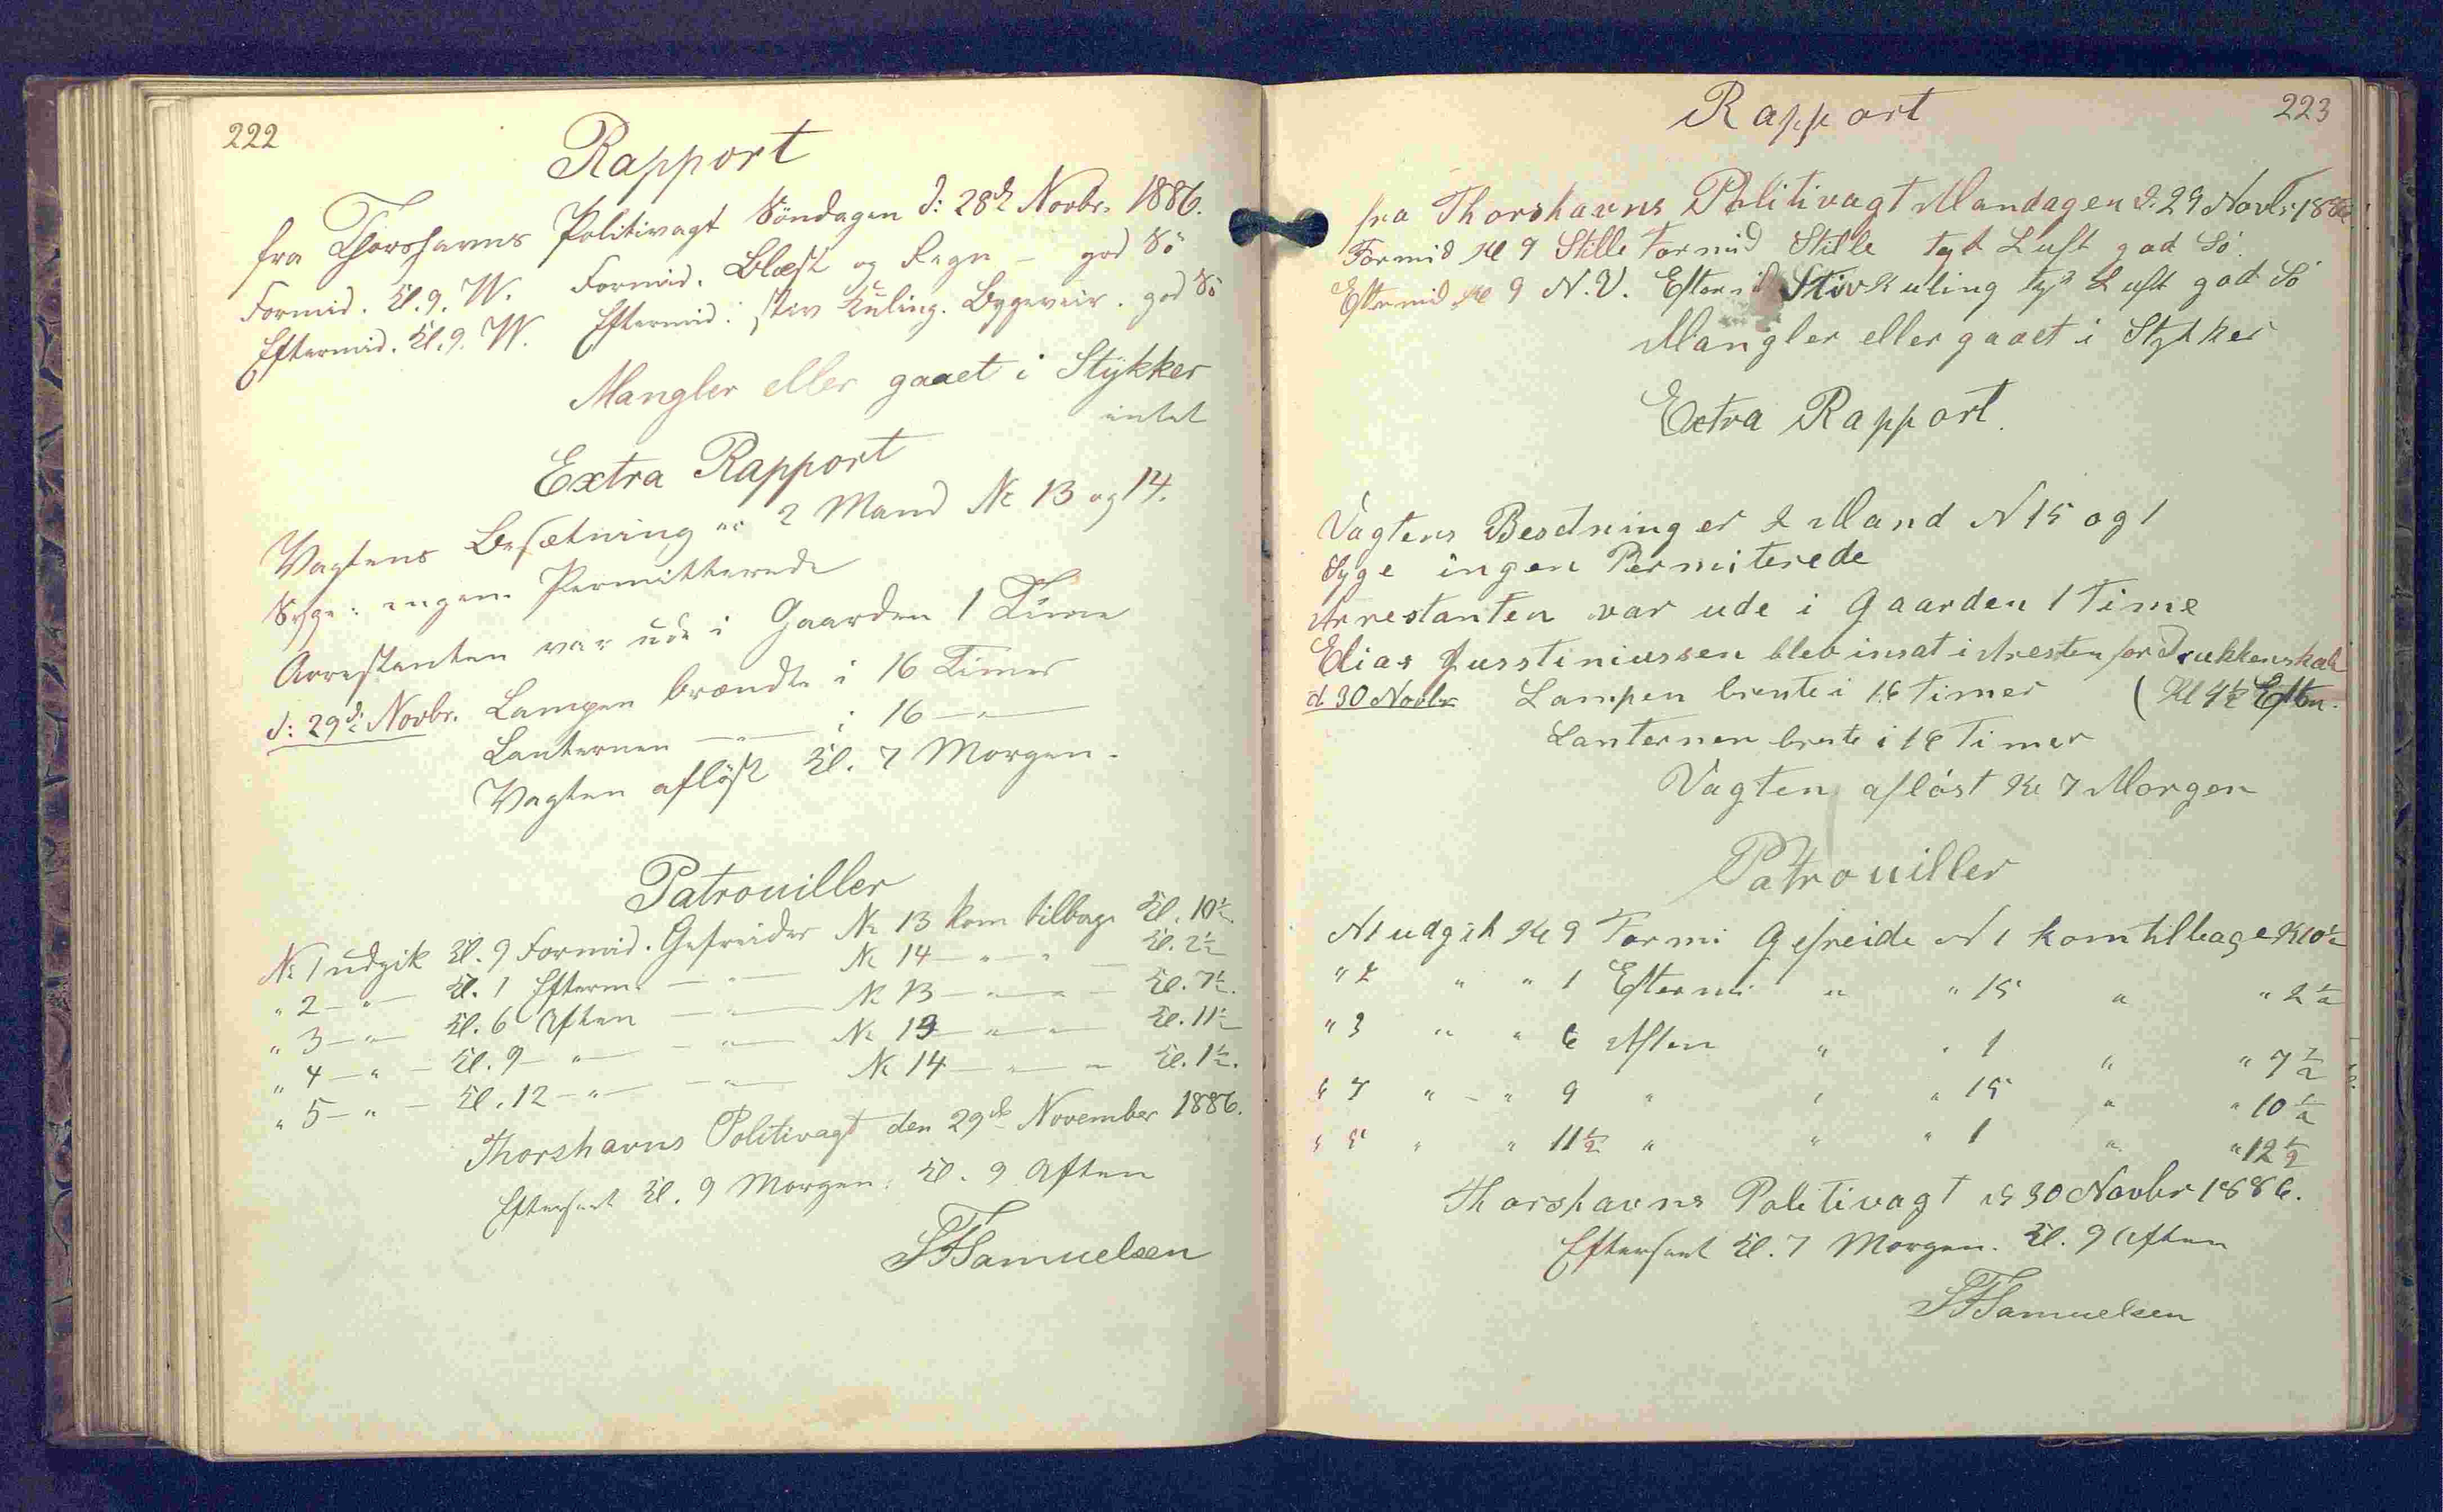 222
Rapport
fra Thorshavns Politivagt Söndagen d: 28de Novbr. 1886.
Formid. Kl. 9. W. Formid. Blæst og Regn - god Sö
Eftermid. Kl. 9. W. Eftermid: stiv Kuling. Bygeveir. god Sö
Mangler eller gaaet i Stykker
intet
Extra Rapport
Vagtens Besætning er 2 Mand No 13 og 14.
Syge: ingen Permitterede
Arrestanten var ude i Gaarden 1 Time
d: 29de Novbr. Lampen brændte i 16 Timer
Lanternen —"— i 16 —"—
Vagten aflöst Kl. 7 Morgen.
Patrouiller
No 1 udgik Kl. 9 Formid. Gefreider No 13 kom tilbage Kl. 10½.
" 2 —"— Kl. 1 Efterm. —"— No 14 —"—"— Kl. 2½
" 3 —"— Kl. 6 Aften —"— No 13 —"—"— Kl. 7½.
" 4 —"— Kl. 9 —"— —"— No 13 —"—"— Kl. 11½
" 5 —"— Kl. 12 —"— —"— No 14 —"—"— Kl. 1½.
Thorshavns Politivagt den 29de November 1886.
Efterseet Kl. 9 Morgen. Kl. 9 Aften
Samuelsen
223
Rapport
fra Thorshavns Politivagt Mandagen d. 29 Novbr 1886
Formid Kl 9 Stille Formid Stille tyk Luft god Sö
Eftermid Kl 9 N.V. Eftermid Stiv Kuling tyk Luft god Sö
Mangler eller gaaet i Stykker
Extra Rapport.
Vagtens Besetning er 2 Mand N 15 og 1
Syge ingen Permiterede
Arrestanten var ude i Gaarden 1 Time
Elias Jusstiniussen blev insat i Aresten for Drukkenskab
d 30 Novbr Lampen brente i 16 Timer (Kl 4½ Eftm.
Lanternen brente i 16 Timer
Vagten aflöst Kl 7 Morgen
Patrouiller
N 1 udgik Kl 9 Formi Gefreide N 1 kom tilbage Kl 10½
" 2 " " 1 Eftermi " " 15 " " 2½
" 3 " " 6 Aften " " 1 " " 7½
" 4 " " 9 " " " 15 " " 10½
" 5 " " 11½ " " " 1 " " 12½
Thorshavns Politivagt d 30 Novbr 1886.
Efterseet Kl. 7 Morgen. Kl. 9 Aften
Samuelsen